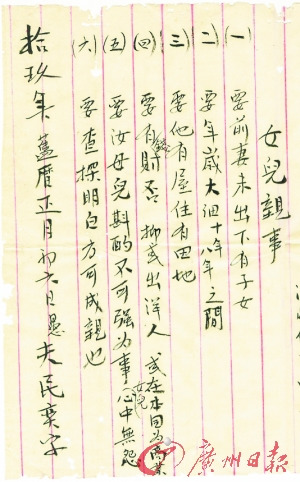 女兒親事
(一) 要前妻未出下有子女
(二) 要年歲大細十八年之間
(三) 要他有屋住有田地
(四) 要有錢財否 抑或出洋人 或在本囯為商業
(五) 要汝母兒斟酌不可強為事 女兒心中無怨
(六) 要查探明白方可成親也
拾玖年舊曆正月初六日愚夫民奕字
廣州日报